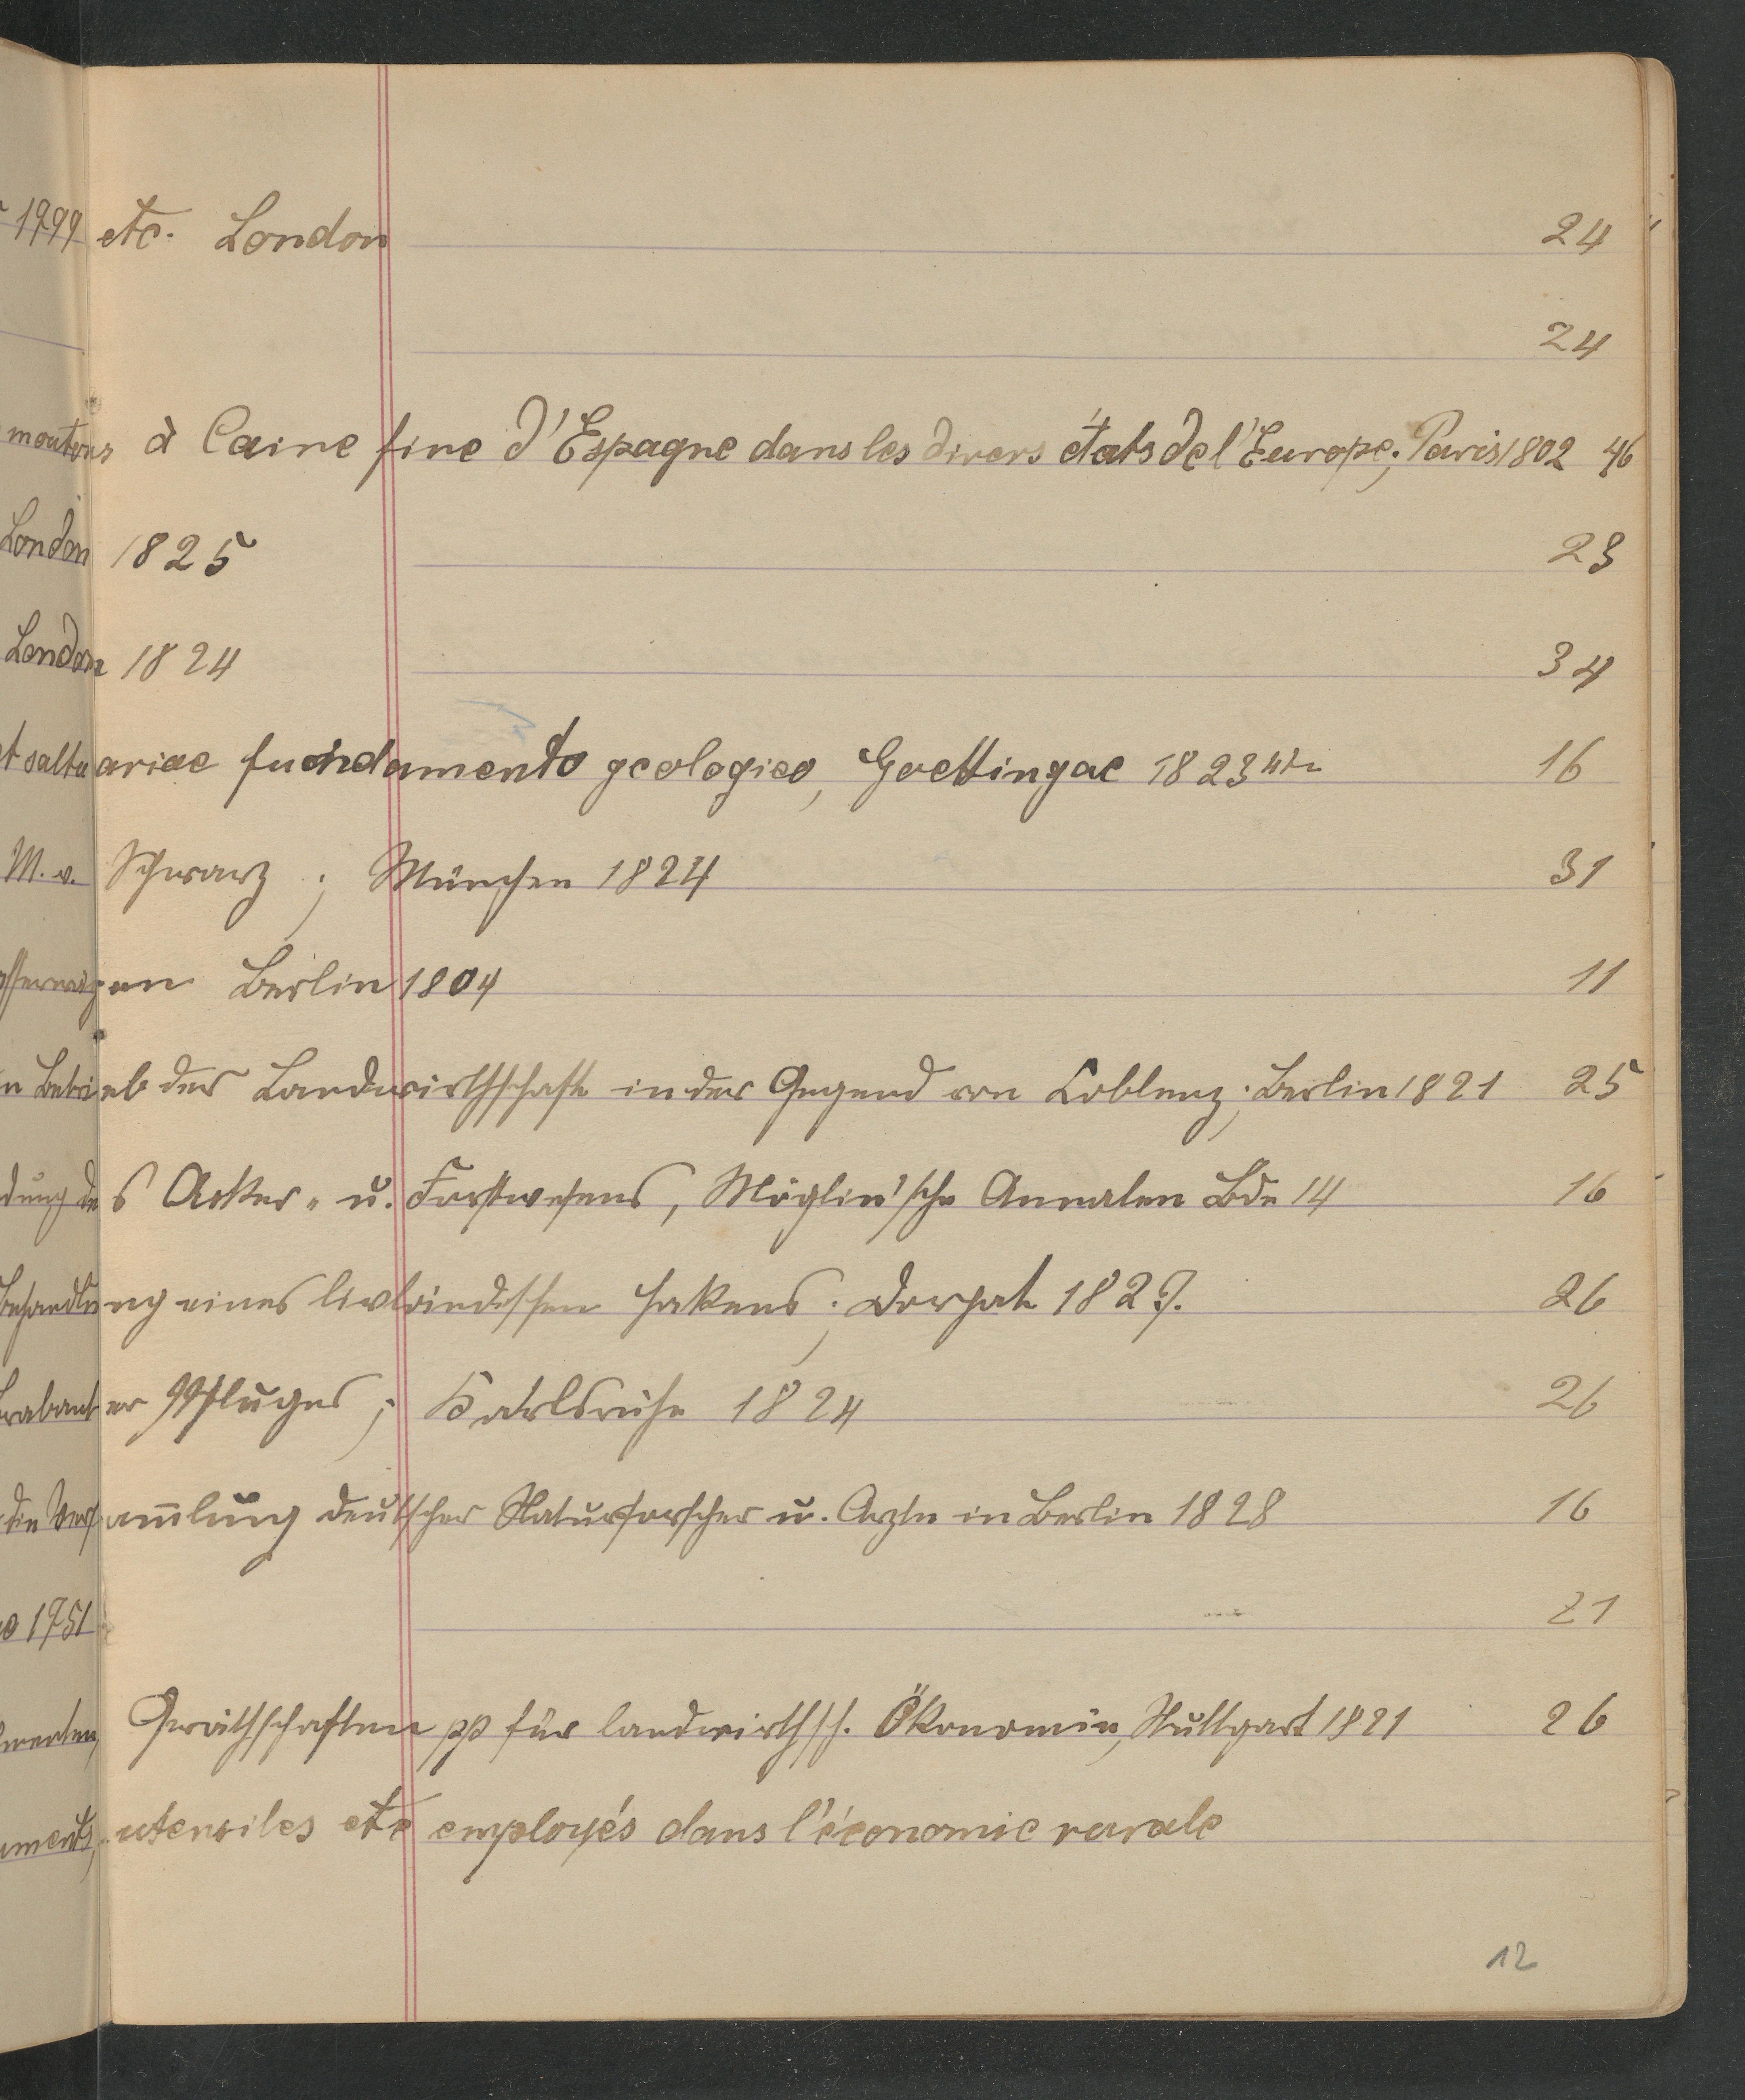 1799 etc. London 24
24
moutons à laine fine d'Espagne dans les divers états de l'Europe; Paris 1802 46
London 1825 23
London 1824 34
et saltuariae fundamento geologico, Goettingae 1823 16
M. v. Schwarz; München 1824 31
Berlin 1804 11
n Betrieb der Landwirthschaft in der Gegend von Coblenz; Berlin 1821 25
dung des Acker- u. Forstwesens, Möglin'sche Annalen Bde 14 16
Behandlung eines livländischen Hakens; Dorpat 1827. 26
Brabanter Pfluges; Karlsruhe 1824 26
die Versam̅lung deutscher Naturforscher u. Ärzte in Berlin 1828 16
1751 21
Geräthschaften pp für landwirthsch. Ökonomie, Stuttgart 1821 26
uments, utensiles etc employés dans l'économie rurale
12